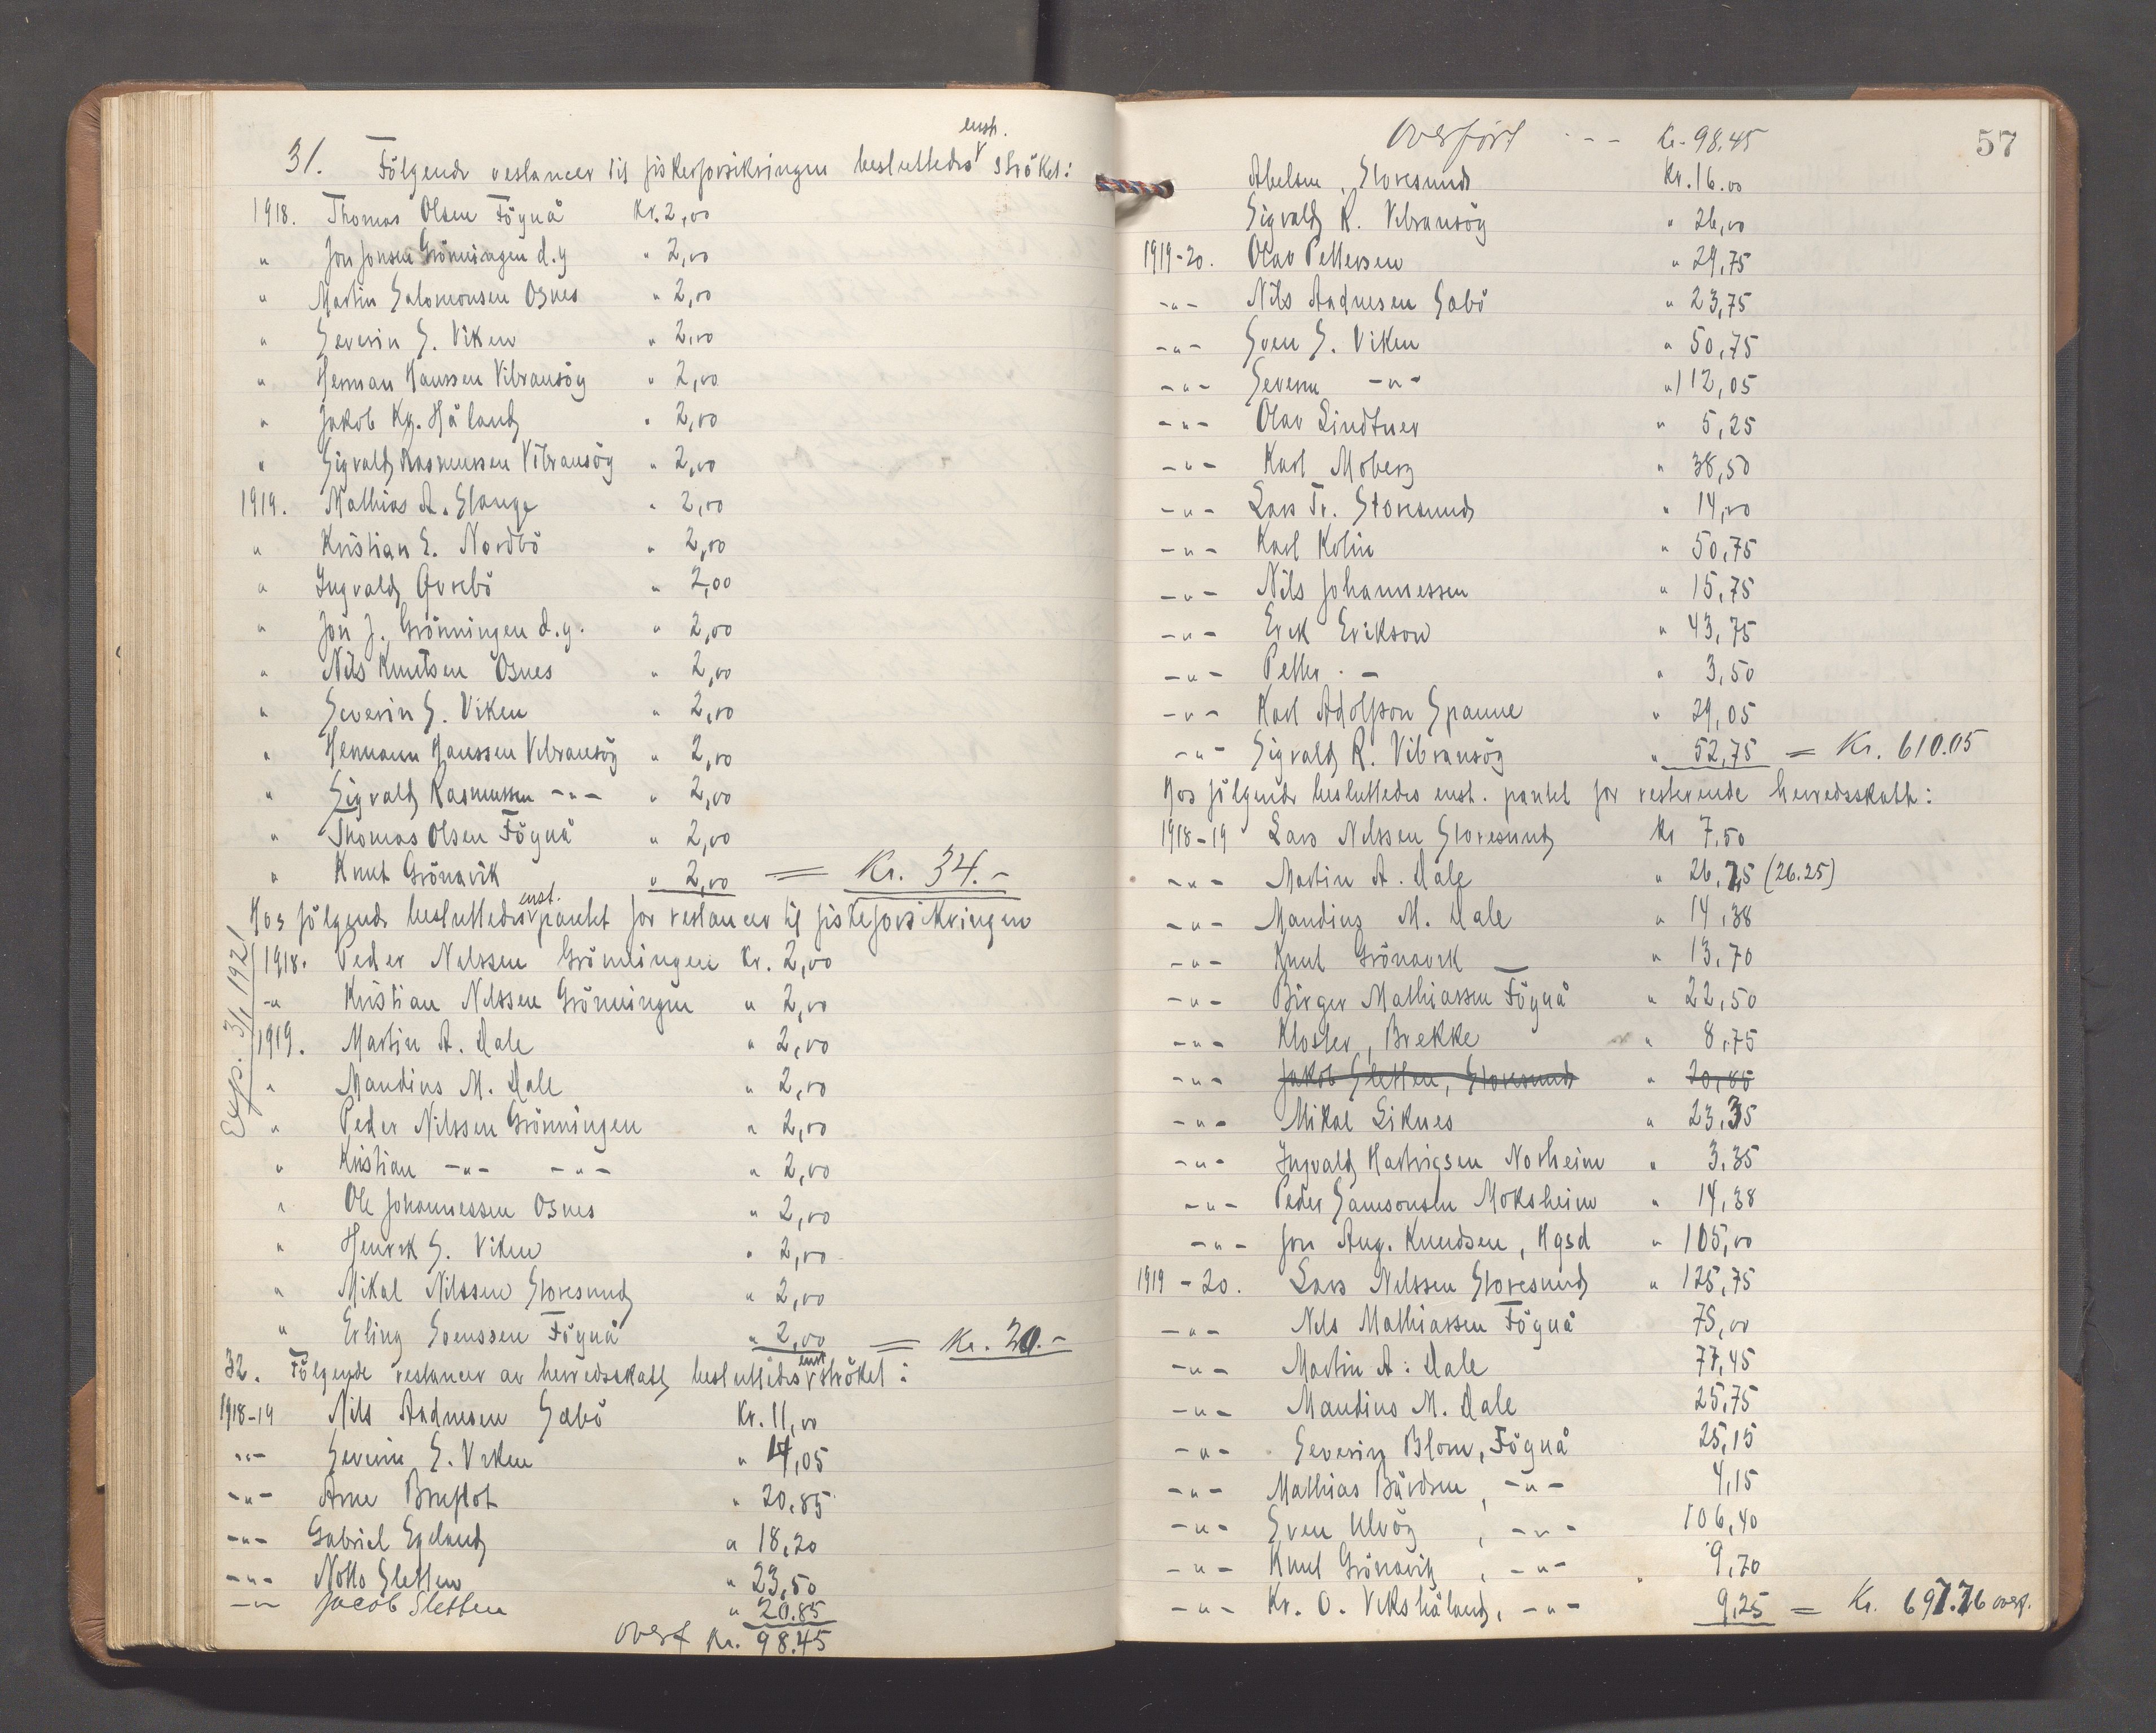 enst.
31. Fölgende restancer til fiskerforsikringen besluttedes strøket:
1918. Thomas Olsen Föynå Kr. 2,00
" Jon Jonsen Grönningen d.y " 2,00
" Martin Salomonsen Osnes " 2,00
" Severin S. Viken " 2,00
" Herman Hanssen Vibransöy " 2,00
" Jakob Kr. Håland " 2,00
" Sigvald Rasmussen Vibransöy " 2,00
1919. Mathias A. Stange " 2,00
" Kristian E. Nordbö " 2,00
" Ingvald Øvrebö " 2,00
" Jon J. Grönningen d.y. " 2,00
" Nils Knutsen Osnes " 2,00
" Severin S. Viken " 2,00
" Hermann Hanssen Vibransöy " 2,00
" Sigvald Rasmussen -"- " 2,00
" Thomas Olsen Föynå " 2,00
" Knut Grönavik " 2,00 = Kr. 34.-
enst.
Hos fölgende besluttedes pantet for restancer til fiskeforsikringen
Exp. 3/1 1921
1918. Peder Nilssen Grönningen Kr. 2,00
-" Kristian Nilssen Grönningen " 2,00
1919. Martin A. Dale " 2,00
" Mandius M. Dale " 2,00
" Peder Nilssen Grönningen " 2,00
" Kristian -"- -"- " 2,00
" Ole Johannessen Osnes " 2,00
" Henrik S. Viken " 2,00
" Mikal Nilssen Storesund " 2,00
" Erling Svenssen Föynå " 2,00 = Kr. 20.-
enst
32. Fölgende restancer av herredsskatt besluttedes strøket:
1918-19 Nils Andresen Sæbö Kr. 11,00
-"- Severin S. Viken " 4,05
-"- Arne Bruflot " 20.85
-"- Gabriel Egeland " 18,20
-"- Notto Sletten " 23,50
-"- Jacob Sletten " 20.85
overf Kr. 98.45
57
Overfört - - - Kr. 98.45
Abelsen, Storesund Kr. 16.00
Sigvald R. Vibransöy " 26,00
1919-20. Olav Pettersen " 29,75
-"- Nils Andresen Sæbö " 23,75
-"- Sven S. Viken " 50,75
-"- Severin -"- " 112,05
-"- Olav Lindtner " 5,25
-"- Karl Moberg " 38,50
-"- Lars Tr. Storesund " 14,00
-"- Karl Kolin " 50,75
-"- Nils Johannessen " 15,75
-"- Erik Erikson " 43,75
-"- Petter - - " 3,50
-"- Karl Adolfson Spanne " 29,05
-"- Sigvald R. Vibransöy " 52,75 = Kr. 610.05
Hos fölgende besluttedes enst. pantet for resterende herredsskatt:
1918-19 Lars Nilssen Storesund Kr 7,50
-"- Martin A. Dale " 26,25 (26.25)
-"- Mandius M. Dale " 14,38
-"- Knut Grönavik " 13,70
-"- Birger Mathiassen Föynå " 22,50
-"- Kloster, Brekke " 8,75
-"- Jakob Sletten, Storesund " 20,85
-"- Mikal Liknes " 23,35
-"- Ingvald Hartvigsen Norheim " 3,35
-"- Peder Samsonsen Moksheim " 14,38
-"- Jon Aug. Knudsen, Hgsd " 105,00
1919-20. Lars Nilssen Storesund " 125,75
-"- Nils Mathiassen Föynå 75,00
-"- Martin A. Dale 77,45
-"- Mandius M. Dale 25,75
-"- Severin Blom, Föynå 25,15
-"- Mathias Bårdsen, -"- 4,15
-"- Sven Ulvöy, -"- 106,40
-"- Knut Grönavik, -"- 9,70
-"- Kr. O. Vikshåland, -"- 9,25 = Kr. 697.76 overf.